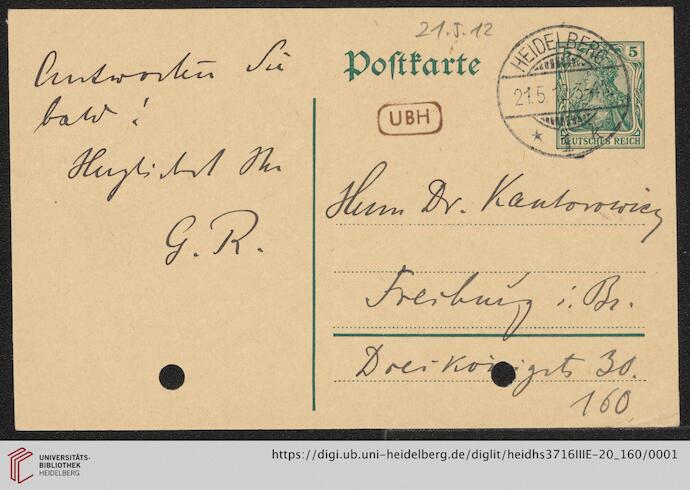 Antworten Sie
bald!
Herzlichst Ihr
G. R.
21.5.12
Postkarte
UBH
HEIDELBERG
21.5.12
5
DEUTSCHES REICH
Herrn Dr. Kantorowicz
Freiburg i. Br.
Dreikönigstr 30.
160
UNIVERSITÄTS-
BIBLIOTHEK
HEIDELBERG
https://digi.ub.uni-heidelberg.de/diglit/heidhs3716IIIE-20_160/0001